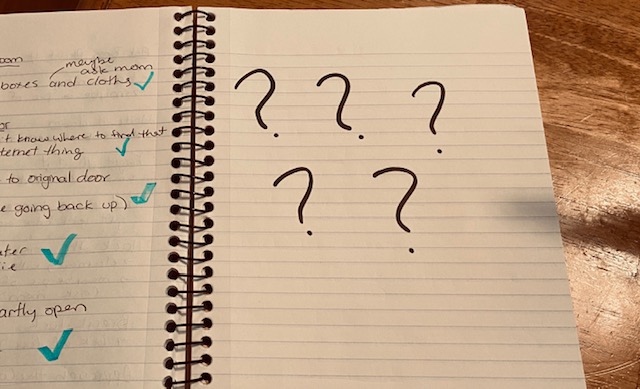 maybe
ask mom
boxes and cloths
t know where to find that
ternet thing
to original door
e going back up)
artly open
? ? ?
? ?